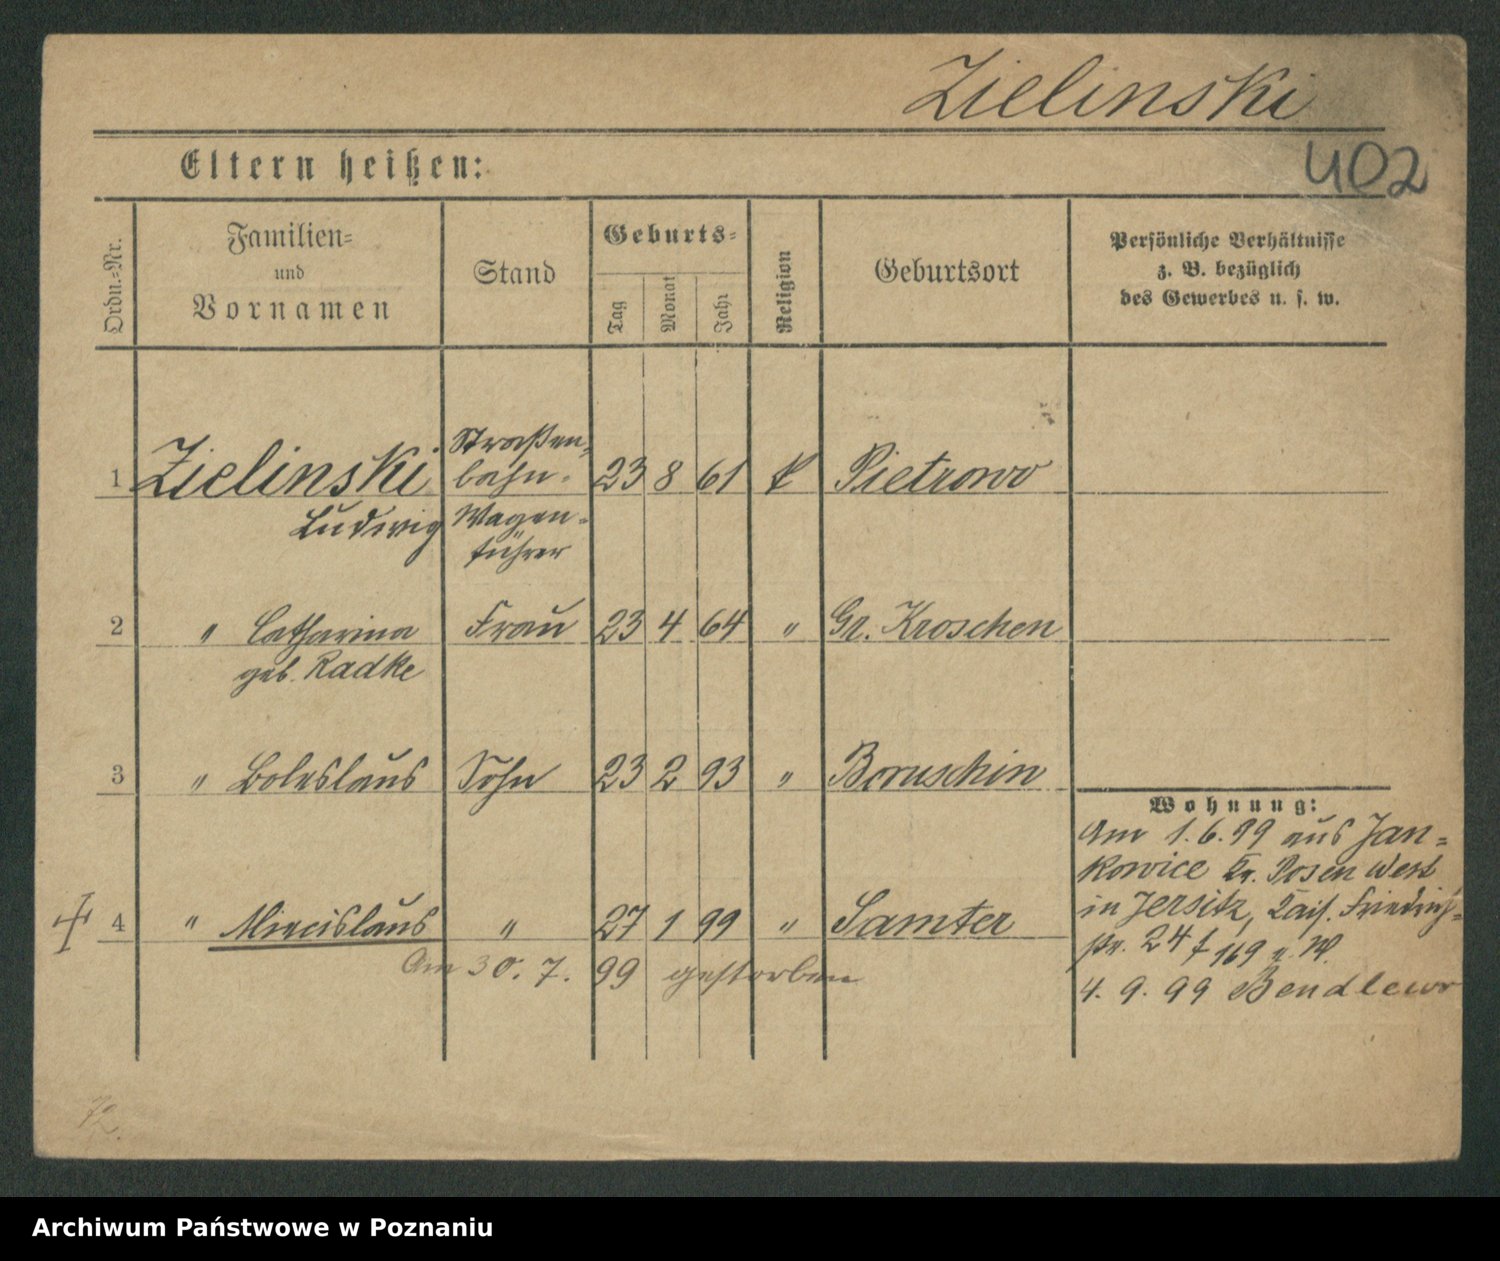 Zielinski
Eltern heißen:
402
Ordn.=Nr.
Familien=
und
Vornamen
Stand
Geburts=
Tag
Monat
Jahr
Religion
Geburtsort
Persönliche Verhältnisse
z. B. bezüglich
des Gewerbes u. s. w.
Straßen=
1 Zielinski bahn= 23 8 61 k Pietrowo
Ludwig Wagen=
führer
2 " Catharina Frau 23 4 64 " Gr. Kroschen
geb. Radke
3 " Boleslaus Sohn 23 2 93 " Boruschin
4 " Miecislaus " 27 1 99 " Samter
Am 30. 7. 99 gestorben
Wohnung:
Am 1. 6. 99 aus Jan=
kowice Kr. Posen West
in Jersitz, Kais. Friedrich=
str. 24 f 169 W.
4. 9. 99 Bendlewo
72.
Archiwum Państwowe w Poznaniu